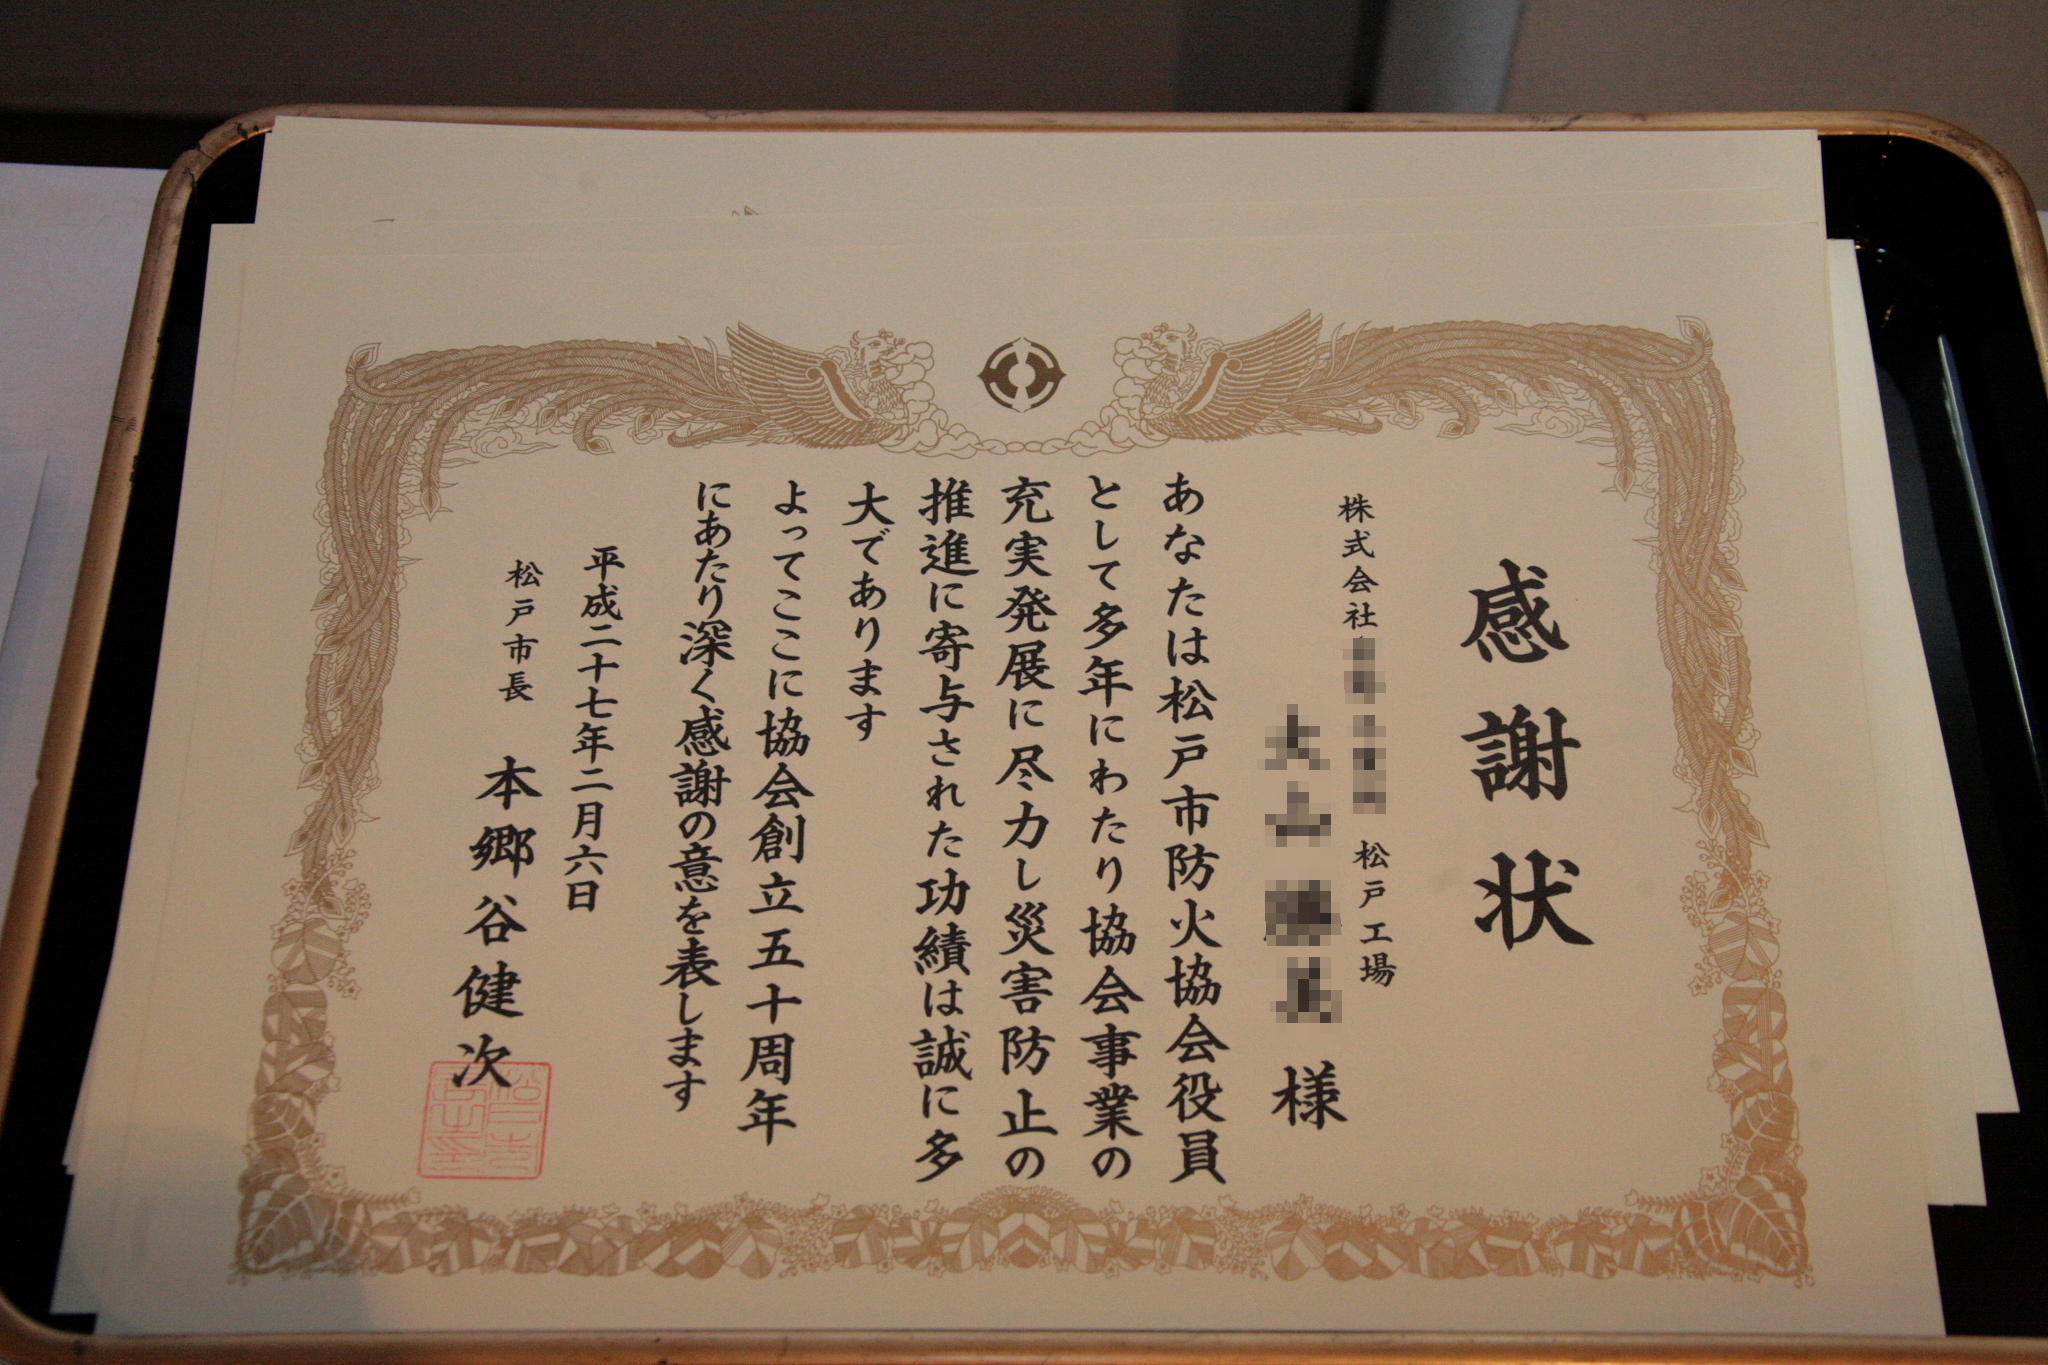 感謝状
株式会社 松戸工場
様
あなたは松戸市防火協会役員
として多年にわたり協会事業の
充実発展に尽力し災害防止の
推進に寄与された功績は誠に多
大であります
よってここに協会創立五十周年
にあたり深く感謝の意を表します
平成二十七年二月六日
松戸市長 本郷谷健次